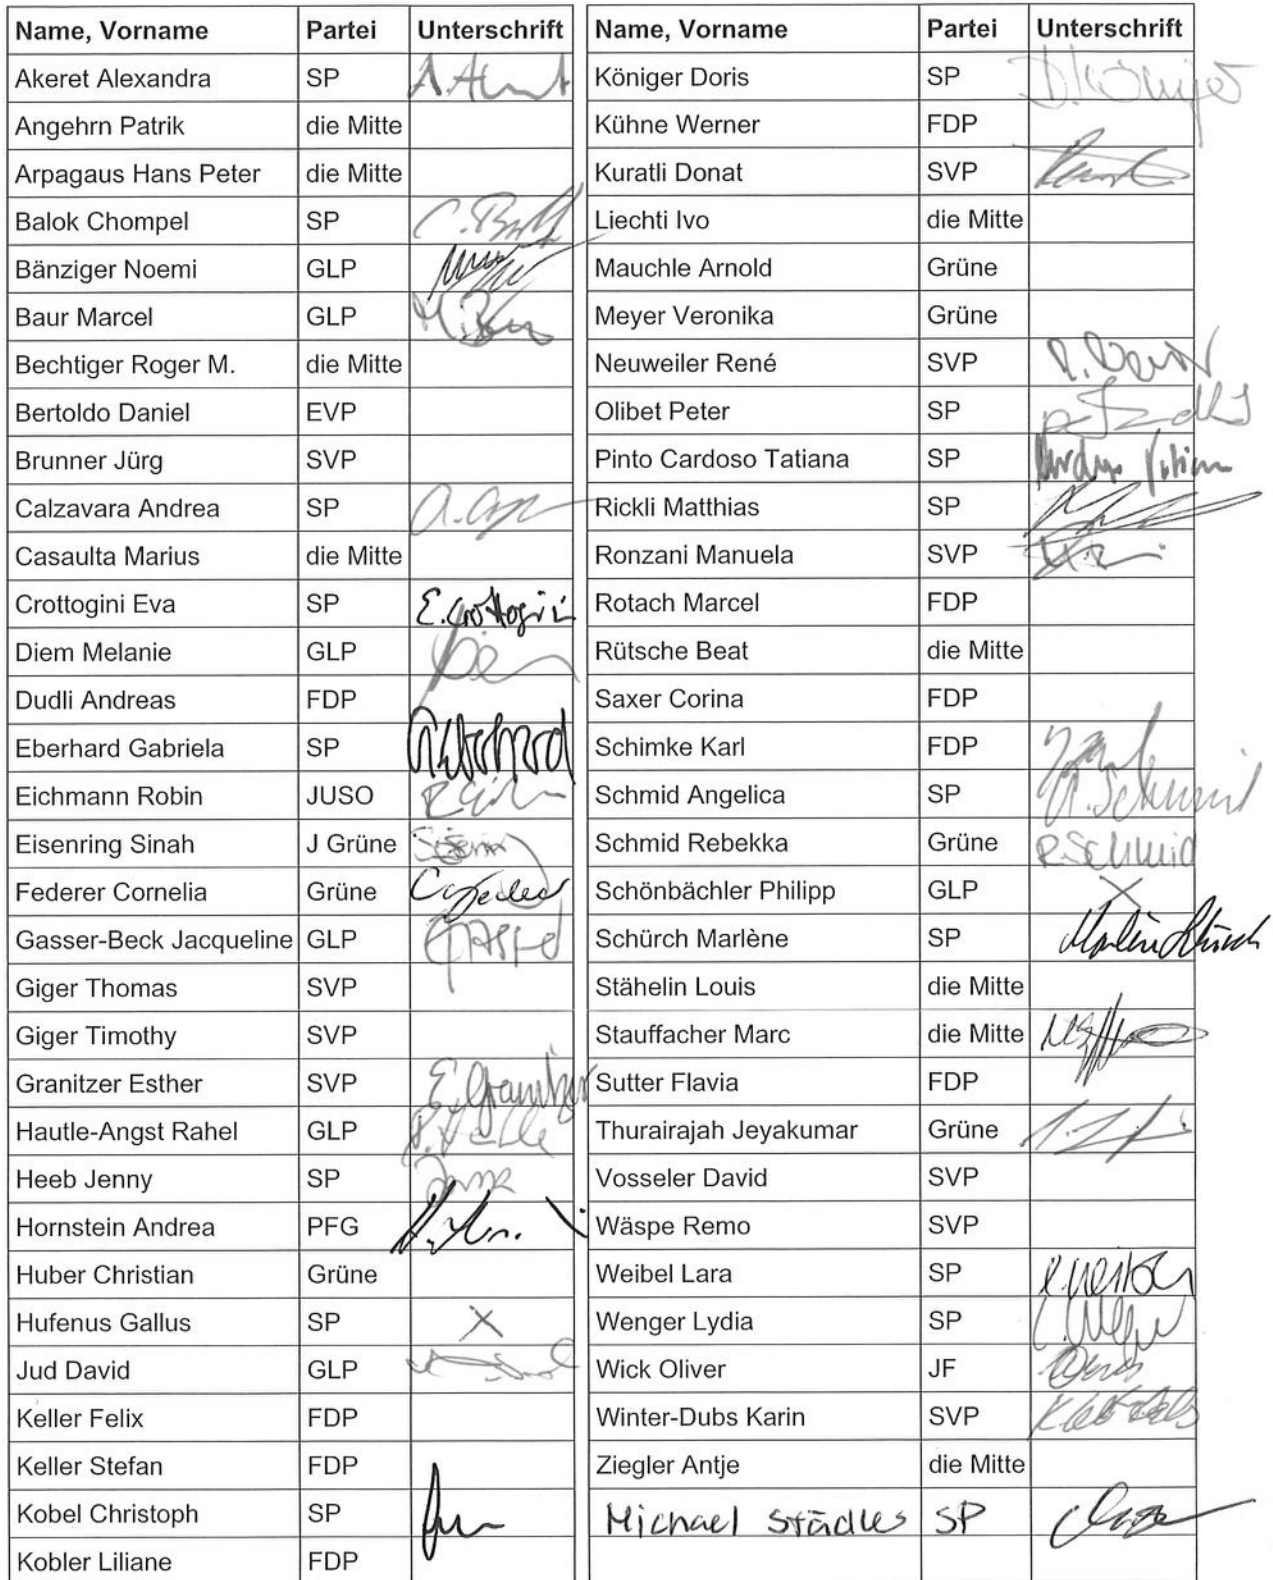 Name, Vorname Partei Unterschrift
Akeret Alexandra SP
Angehrn Patrik die Mitte
Arpagaus Hans Peter die Mitte
Balok Chompel SP
Bänziger Noemi GLP
Baur Marcel GLP
Bechtiger Roger M. die Mitte
Bertoldo Daniel EVP
Brunner Jürg SVP
Calzavara Andrea SP
Casaulta Marius die Mitte
Crottogini Eva SP E. Crottogini
Diem Melanie GLP
Dudli Andreas FDP
Eberhard Gabriela SP
Eichmann Robin JUSO
Eisenring Sinah J Grüne
Federer Cornelia Grüne
Gasser-Beck Jacqueline GLP
Giger Thomas SVP
Giger Timothy SVP
Granitzer Esther SVP E. Granitzer
Hautle-Angst Rahel GLP
Heeb Jenny SP
Hornstein Andrea PFG
Huber Christian Grüne
Hufenus Gallus SP X
Jud David GLP
Keller Felix FDP
Keller Stefan FDP
Kobel Christoph SP
Kobler Liliane FDP
Name, Vorname Partei Unterschrift
Königer Doris SP D. Königer
Kühne Werner FDP
Kuratli Donat SVP
Liechti Ivo die Mitte
Mauchle Arnold Grüne
Meyer Veronika Grüne
Neuweiler René SVP
Olibet Peter SP
Pinto Cardoso Tatiana SP
Rickli Matthias SP
Ronzani Manuela SVP
Rotach Marcel FDP
Rütsche Beat die Mitte
Saxer Corina FDP
Schimke Karl FDP
Schmid Angelica SP A. Schmid
Schmid Rebekka Grüne R Schmid
Schönbächler Philipp GLP X
Schürch Marlène SP Marlène Schürch
Stähelin Louis die Mitte
Stauffacher Marc die Mitte
Sutter Flavia FDP
Thurairajah Jeyakumar Grüne
Vosseler David SVP
Wäspe Remo SVP
Weibel Lara SP
Wenger Lydia SP
Wick Oliver JF
Winter-Dubs Karin SVP
Ziegler Antje die Mitte
Michael Städler SP